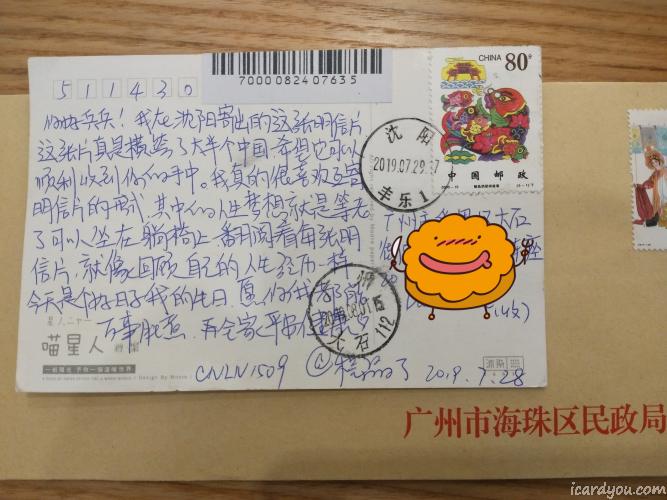 7000082407635
511430
CHINA 80分
中国邮政
你好兵兵！我在沈阳寄出的这张明信片
这张片真是横穿了大半个中国，希望它可以
顺利收到你的手中。我真的很喜欢
明信片的形式，其中的人生梦想就是等老
了可以坐在躺椅上，翻阅着每张明
信片，就像回顾自己的人生经历一样
今天是个好日子我的生日，愿你我
百事胜意，再全家平安健康
沈阳
2019.07.29
丰乐1
大石
座
(收)
2019.08.01
大石 112
喵星人
CNLN1509
2019.7.28
广州市海珠区民政局
icardyou.com